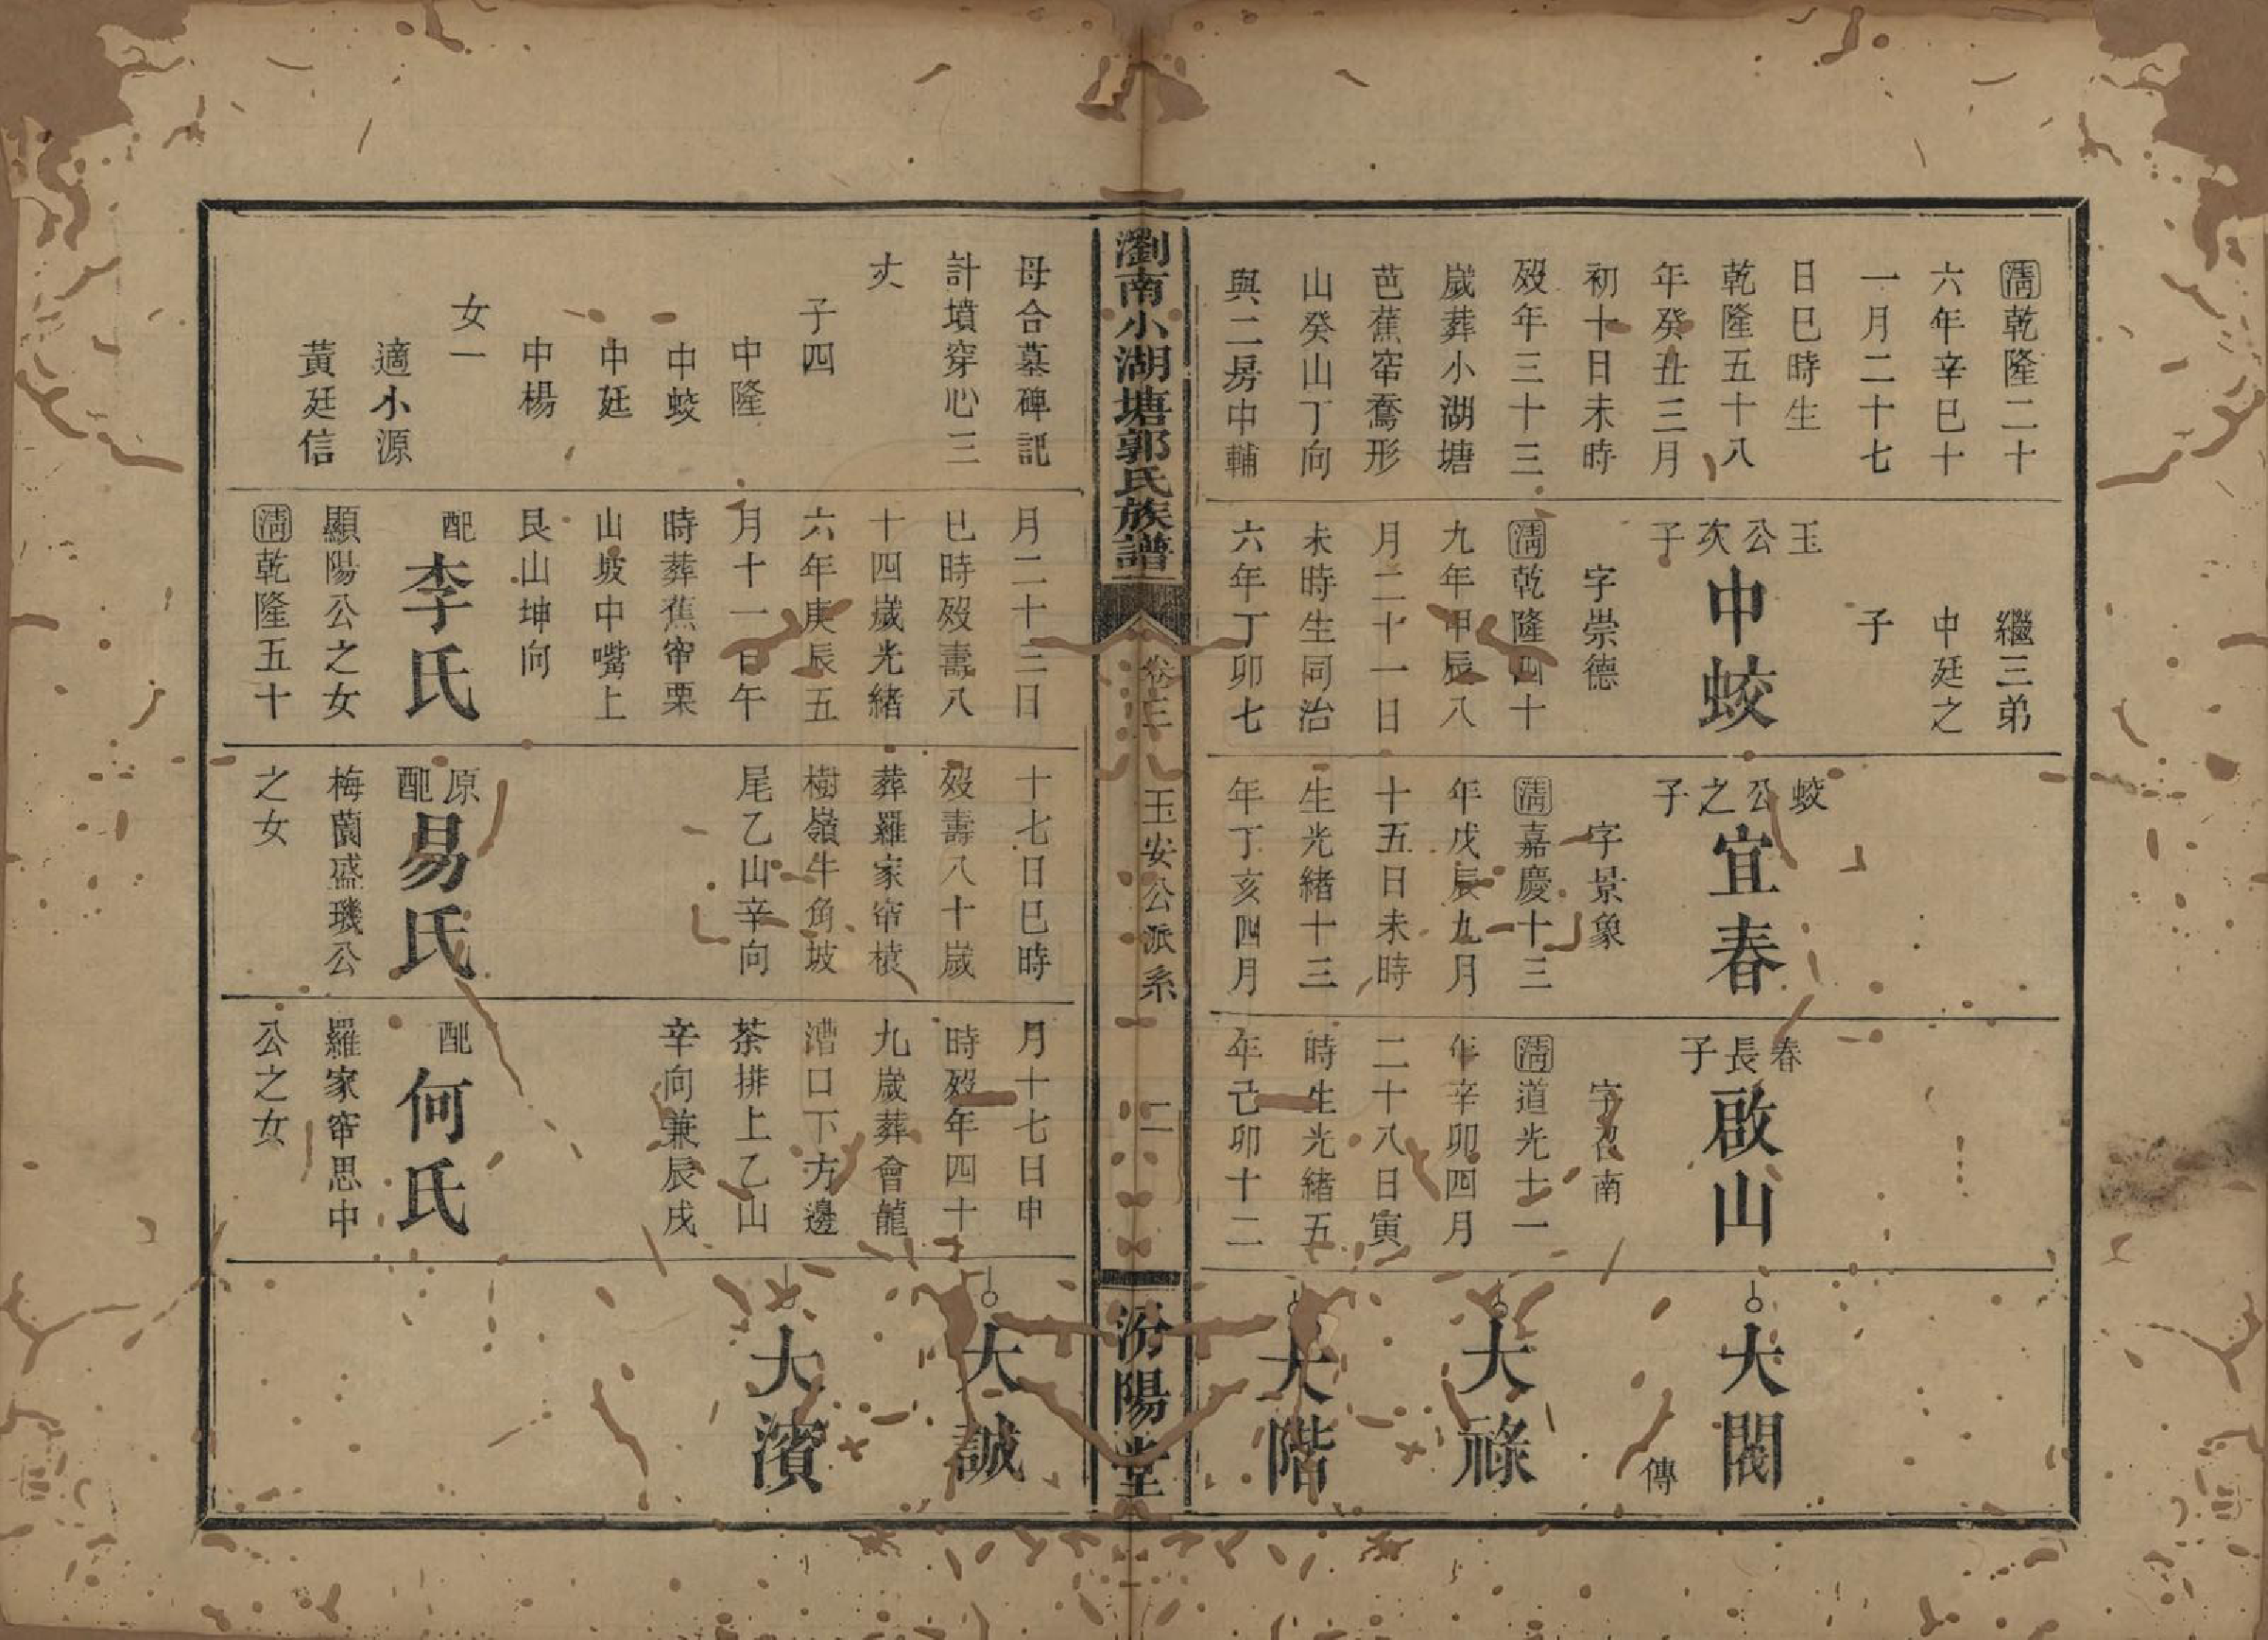 淸乾隆二十
六年辛巳十
一月二十七
日巳時生
乾隆五十八
年癸丑三月
初十日未時
歿年三十三
歲葬小湖塘
芭蕉窰鴌形
山癸山丁向
與二房中輔
繼三弟
中廷之
子
玉公次子
中蛟
字崇德
淸乾隆四十
九年甲辰八
月二十一日
未時生同治
六年丁卯七
蛟公之子
宜春
字景象
淸嘉慶十三
年戊辰九月
十五日未時
生光緒十三
年丁亥四月
春長子
啟山
字召南
淸道光十一
年辛卯四月
二十八日寅
時生光緒五
年己卯十二
大閣
傳
大祿
大階
瀏南小湖塘郭氏族譜
卷三
玉安公派系
二
汾陽堂
母合墓碑記
計墳穿心三
丈
子四
中隆
中蛟
中廷
中楊
女一
適小源
黃廷信
月二十三日
巳時歿壽八
十四歲光緒
六年庚辰五
月十一日午
時葬蕉窰栗
山坡中嘴上
艮山坤向
配
李氏
顯陽公之女
淸乾隆五十
十七日巳時
歿壽八十歲
葬羅家窰樍
樹嶺牛角坡
尾乙山辛向
原配
易氏
梅蘭盛璣公
之女
月十七日申
時歿年四十
九歲葬會龍
漕口下方邊
茶排上乙山
辛向兼辰戌
配
何氏
羅家窰思中
公之女
大誠
大濱